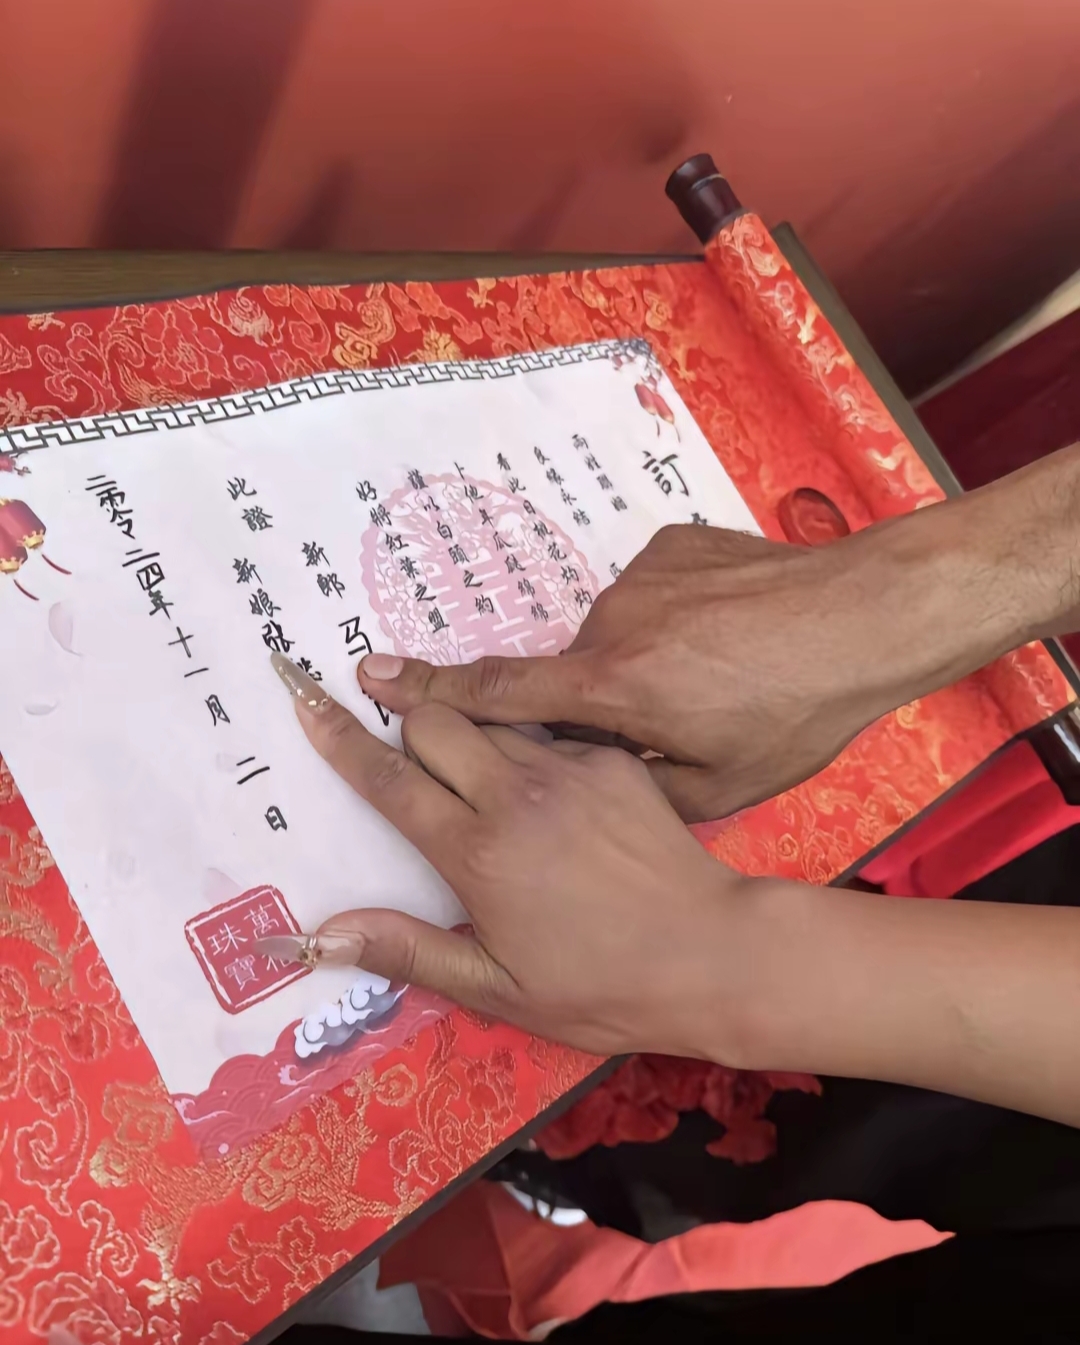 訂
兩姓聯姻
良緣永結
看此日桃花灼灼
卜他年瓜瓞綿綿
謹以白頭之約
好將紅葉之盟
新郎 马
此證 新娘 张
二零二四年十一月二日
萬
珠寶